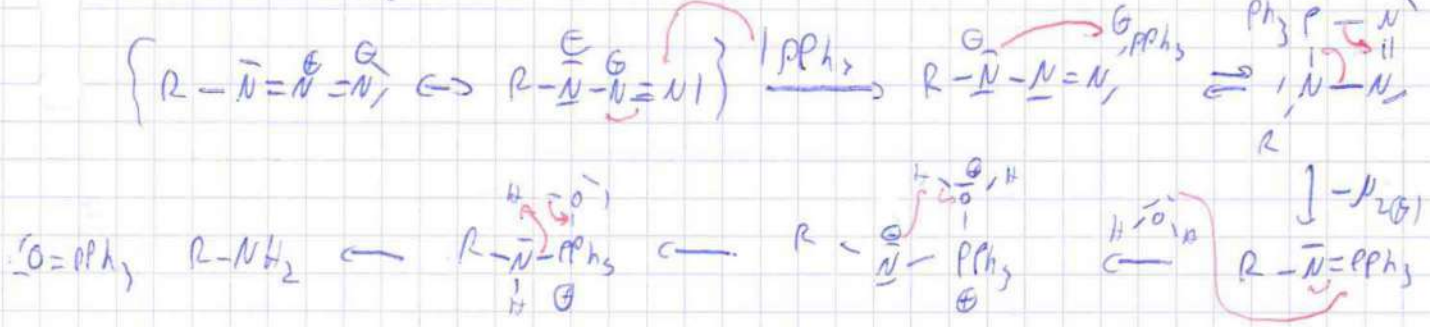 { R – N = N⊕ = N⊖ ↔ R – N⊖ – N⊕ ≡ N| } |PPh₃ → R – N⊖ – N = N, ⊕PPh₃ ⇌ Ph₃P – N = N – N – R
– N₂(g)
O=PPh₃ R–NH₂ ← R – N(H) – PPh₃⊕ – O – H ← R – N⊖ – PPh₃⊕ – O⊕(H)H ← H–O–H R – N = PPh₃